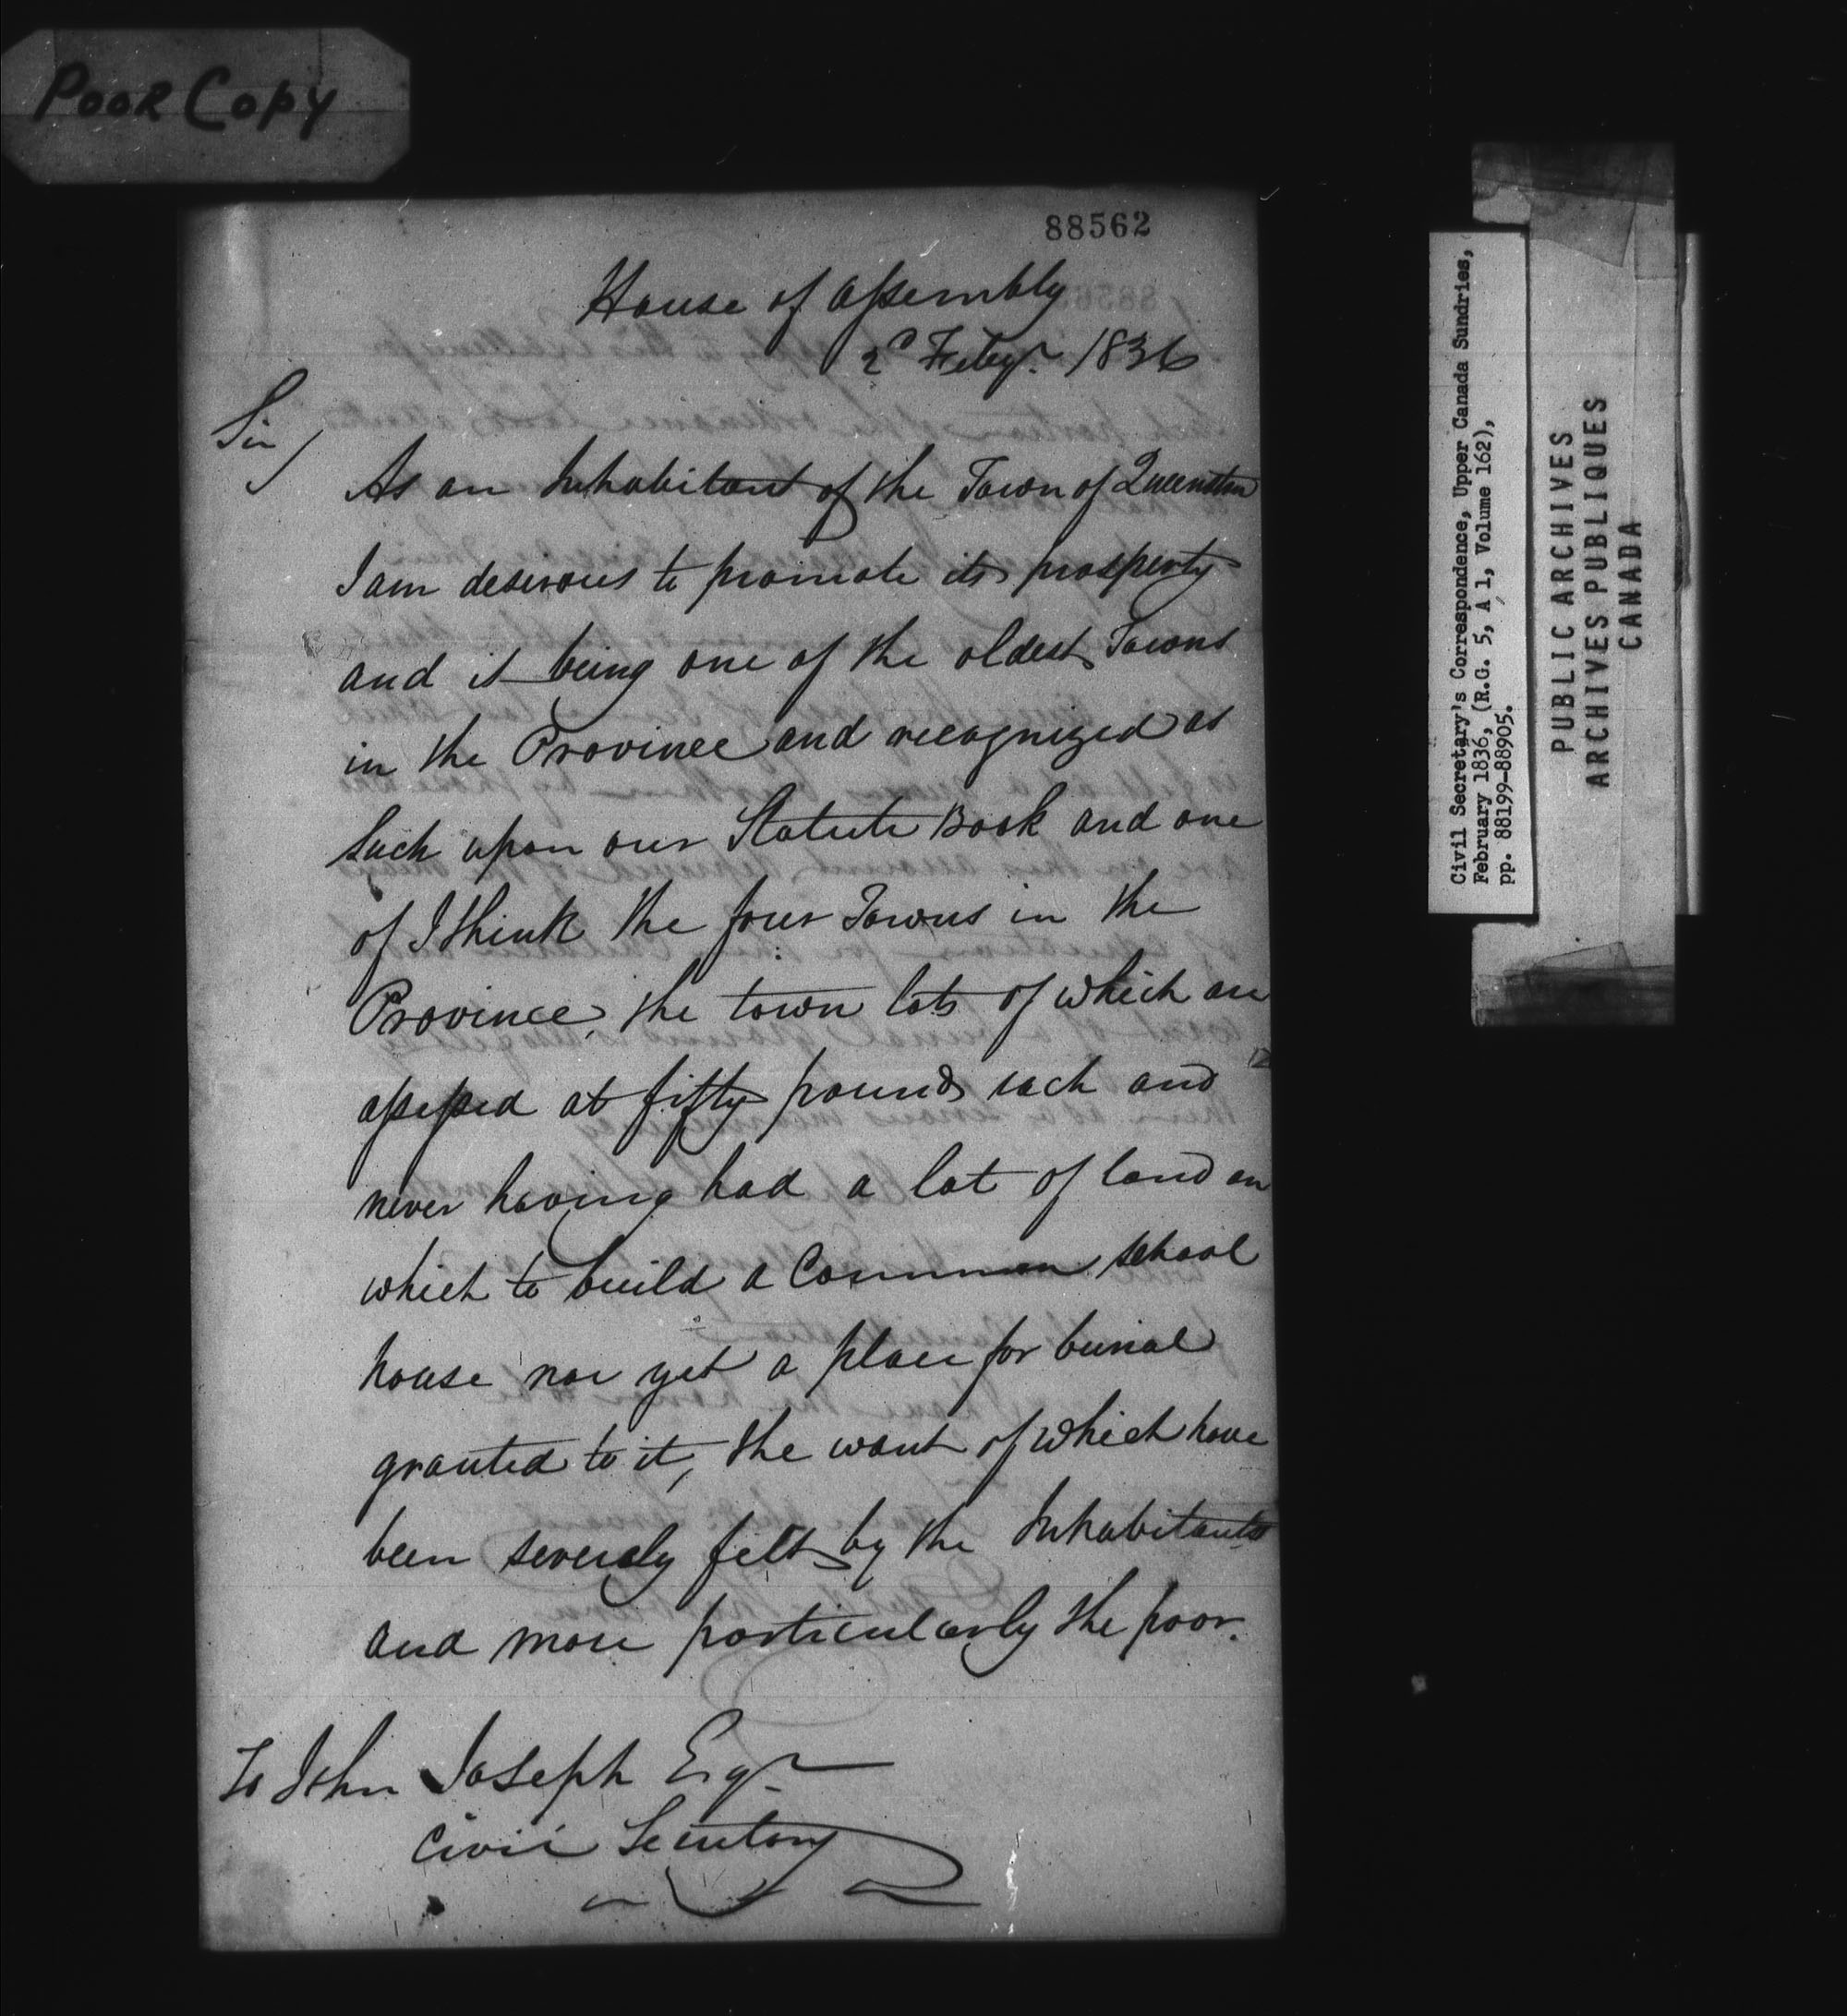 Poor Copy
88562
House of Assembly
2d Feby. 1836
Sir
As an Inhabitant of the Town of Queenston
I am desirous to promote its prosperity
and it being one of the oldest Towns
in the Province and recognized as
such upon our Statute Book and one
of I think the four Towns in the
Province, the town lots of which are
assessed at fifty pounds each and
never having had a lot of land on
which to build a Common School
house nor yet a place for burial
granted to it, the want of which have
been severely felt by the Inhabitants
and more particularly the poor.
To John Joseph Esqr
Civil Secretary
Civil Secretary's Correspondence, Upper Canada Sundries,
February 1836, (R.G. 5, A 1, Volume 162),
pp. 88199-88905.
PUBLIC ARCHIVES
ARCHIVES PUBLIQUES
CANADA